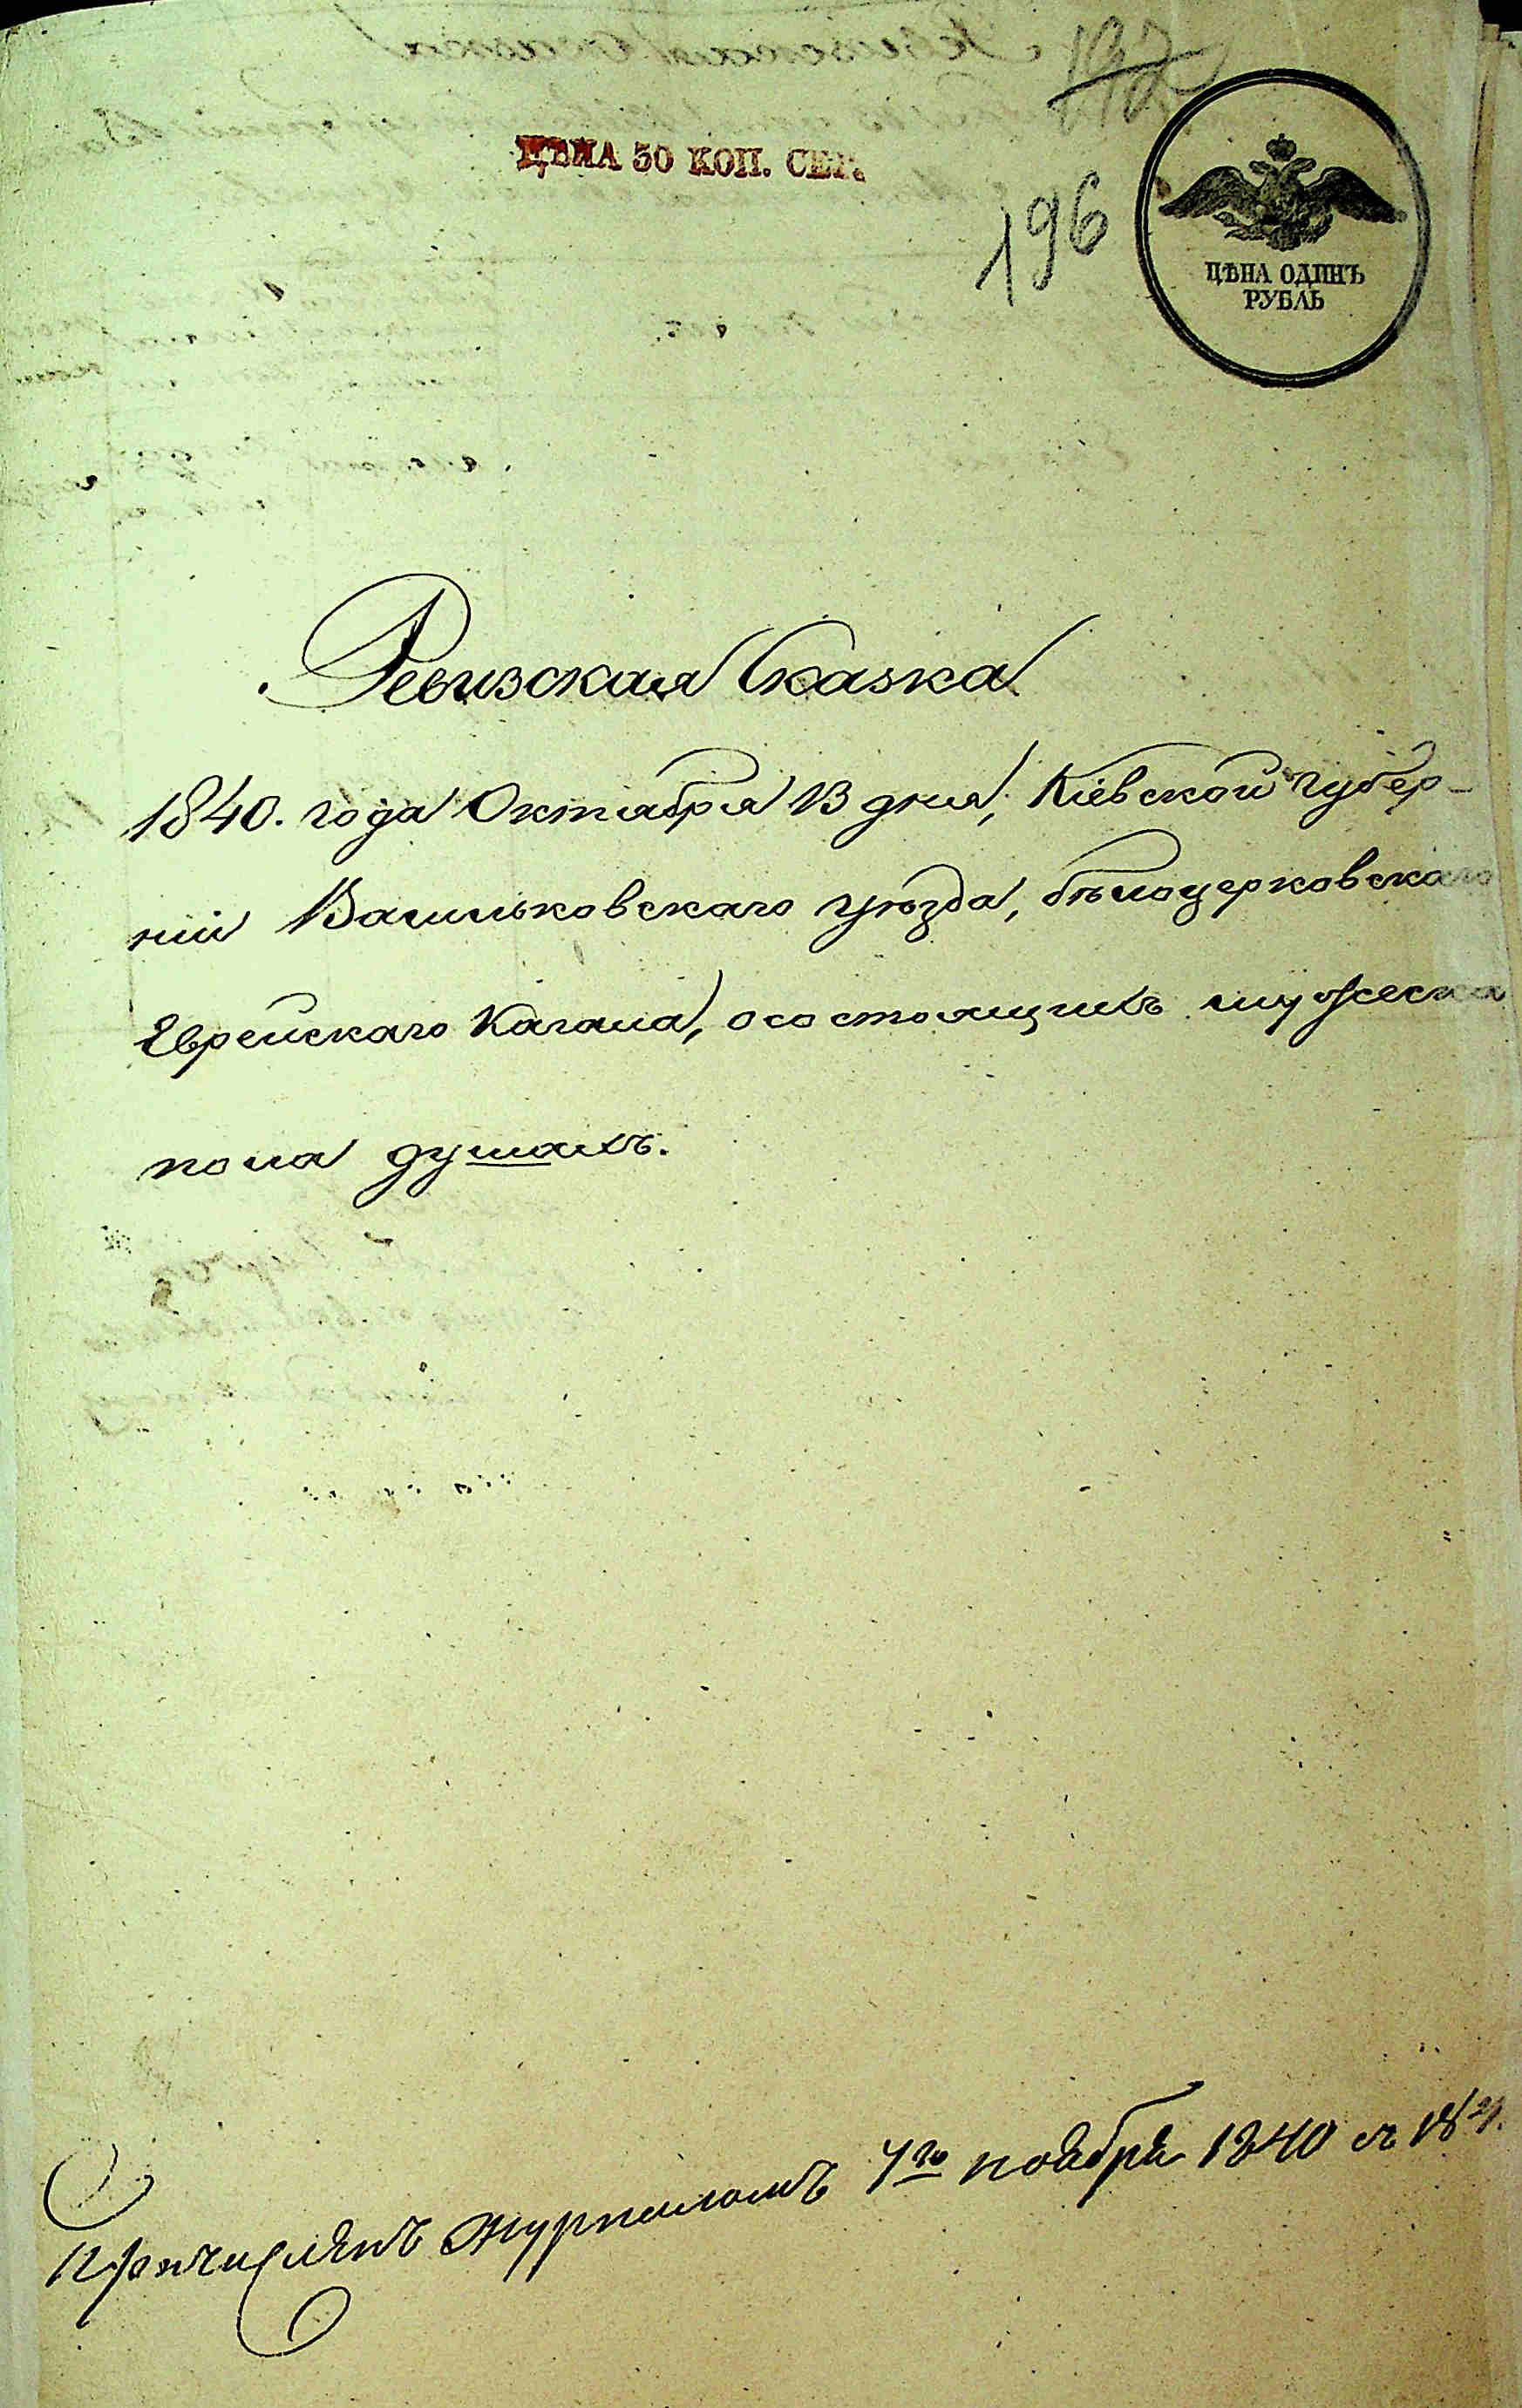 192
ЦѢНА 50 КОП. СЕР.
196
ЦѢНА ОДИНЪ
РУБЛЬ
Ревизская Сказка
1840. года Октября 13 дня, Кіевской губер-
ніи Васильковскаго уѣзда, бѣлоцерковскаго
Еврейскаго Кагала, о состоящихъ мужеска
пола душахъ.
Причисленъ журналомъ 7го ноября 1840 съ